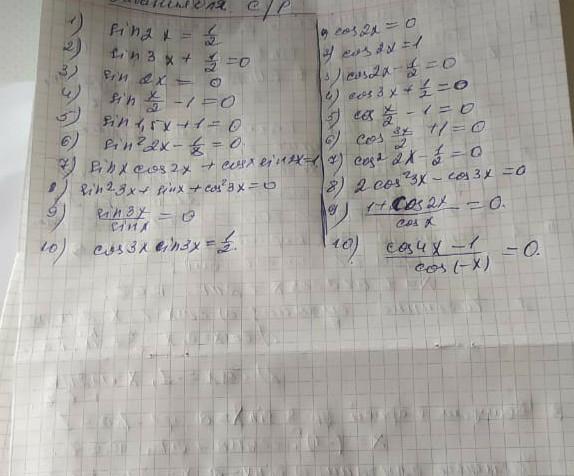 с/р.
1) sin 2x = 1/2
2) sin 3x + 1/2 = 0
3) sin 2x = 0
4) sin x/2 - 1 = 0
5) sin 1,5x + 1 = 0
6) sin² 2x - 1/8 = 0.
7) sin x cos 2x + cos x sin 2x = 1
8) sin² 3x + sin x + cos² 3x = 0
9) sin 3x / sin x = 0
10) cos 3x sin 3x = 1/2.
1) cos 2x = 0
2) cos 2x = 1
3) cos 2x - 1/2 = 0
4) cos 3x + 1/2 = 0
5) cos x/2 - 1 = 0
6) cos 3x/2 + 1 = 0
7) cos² 2x - 1/2 = 0
8) 2 cos² 3x - cos 3x = 0
9) 1 + cos 2x / cos x = 0.
10) cos 4x - 1 / cos (-x) = 0.